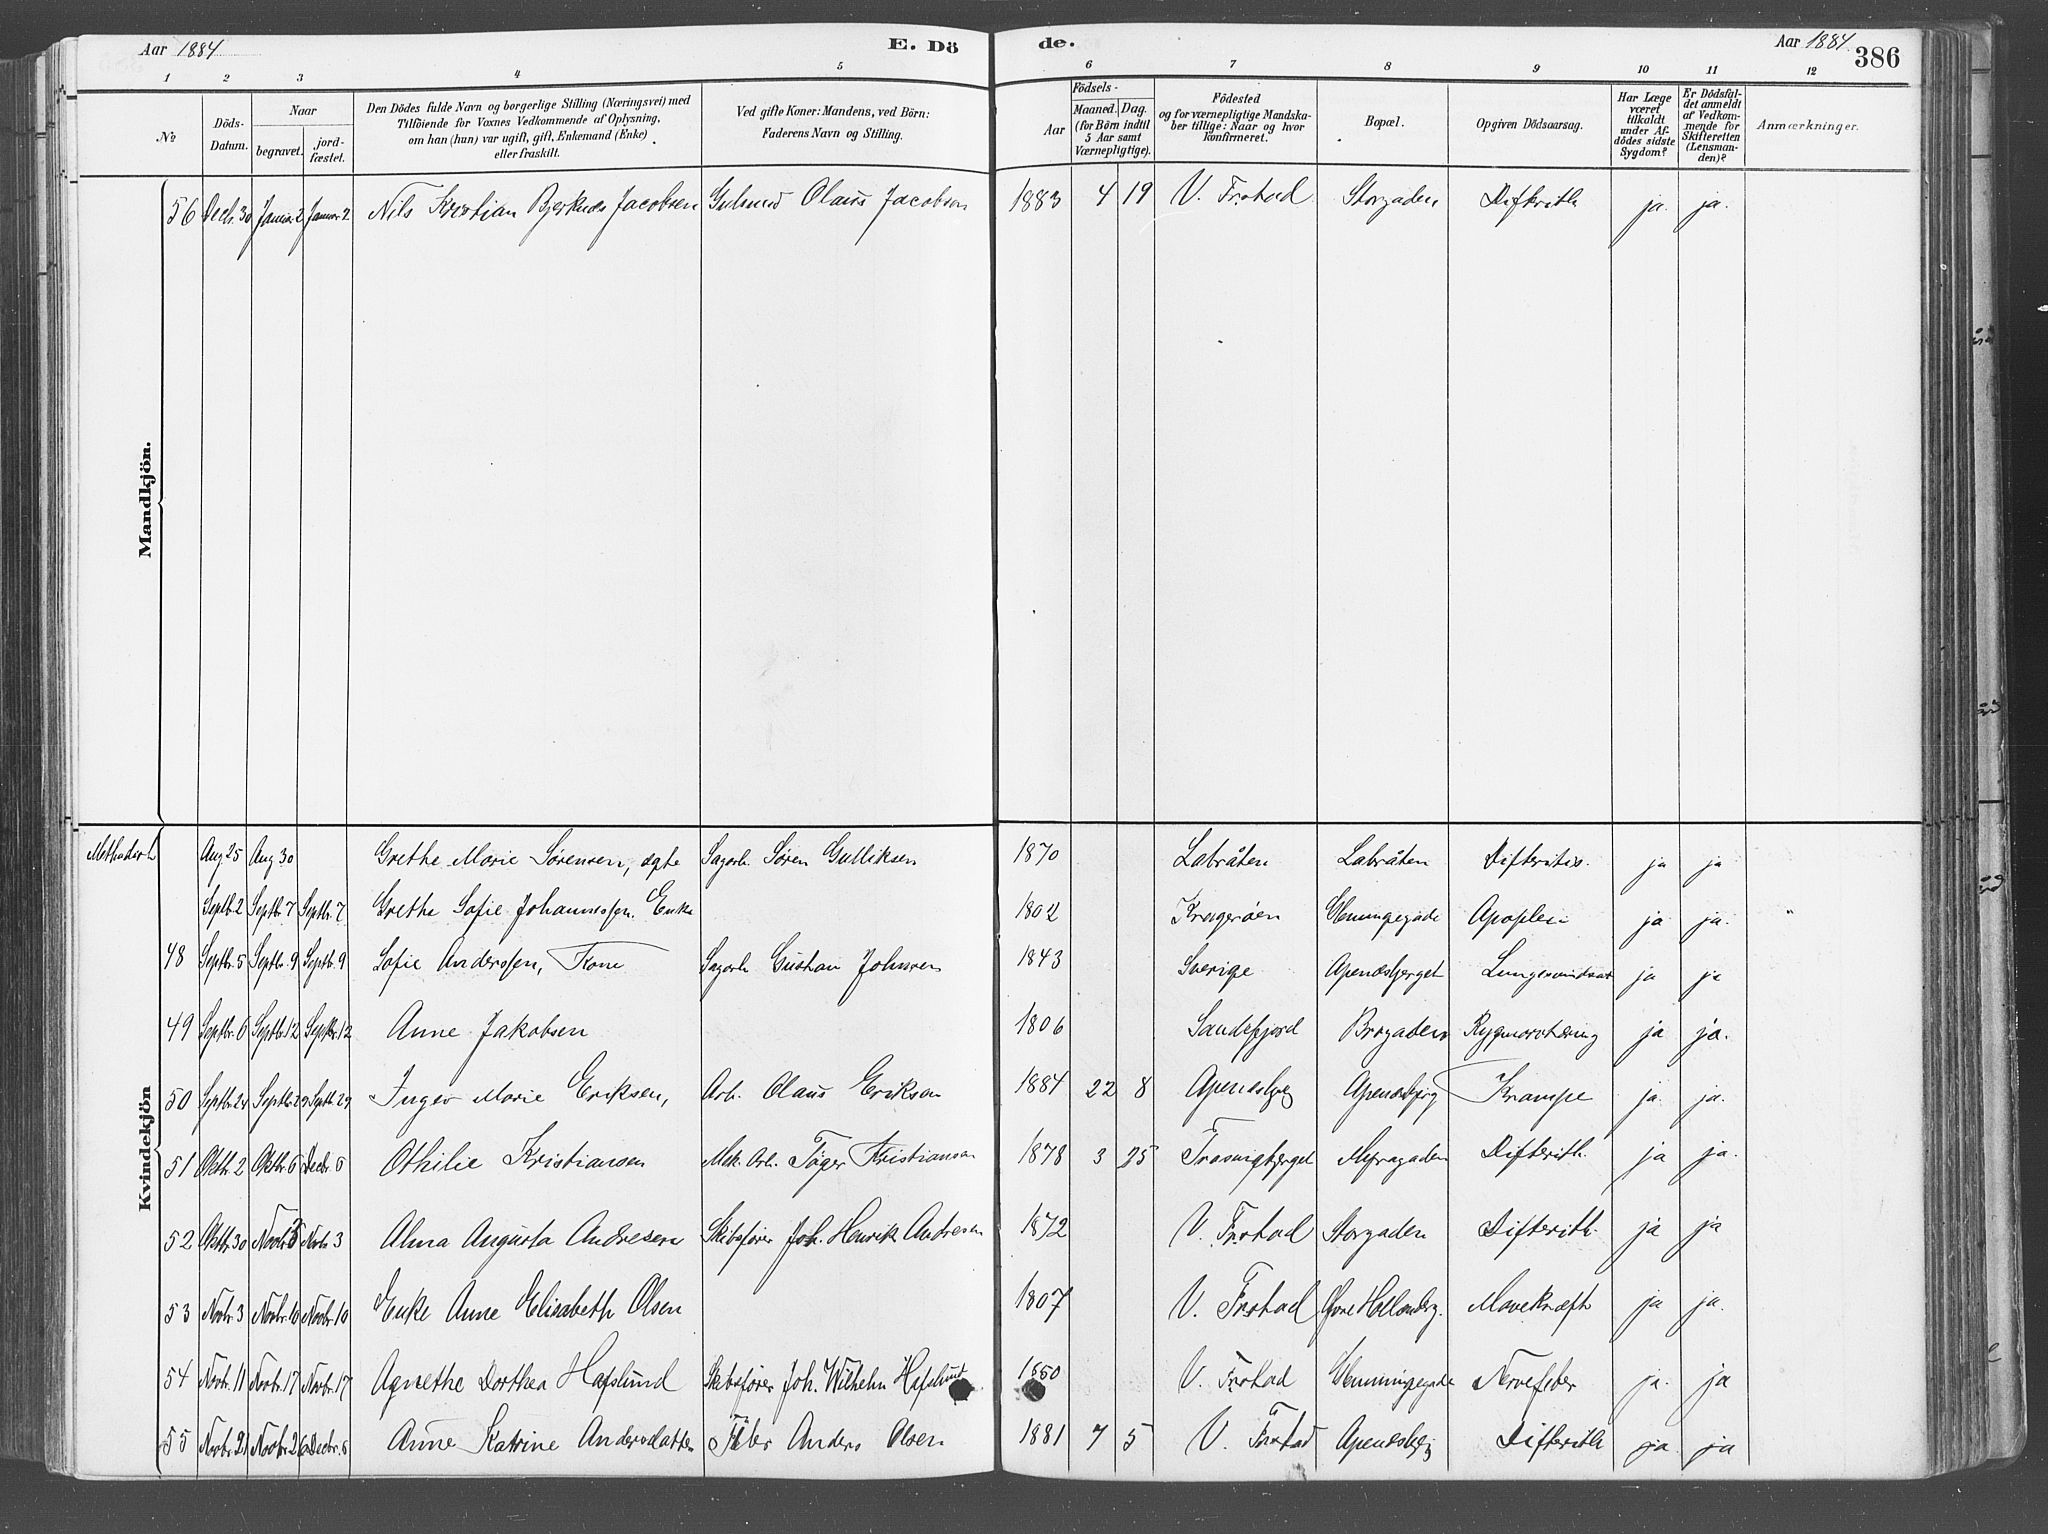 Aar 1884 E. Dö de. Aar 1884. 386
1 2 3 4 5 6 7 8 9 10 11 12
№ Döds-Datum. Naar begravet. jordfæstet. Den Dödes fulde Navn og borgerlige Stilling (Næringsvei) med Tilföiende for Voxnes Vedkommende af Oplysning, om han (hun) var ugift, gift, Enkemand (Enke) eller fraskilt. Ved gifte Koner: Mandens, ved Börn: Faderens Navn og Stilling. Födsels- Aar Maaned. Dag. (for Börn indtil 5 Aar samt Værnepligtige). Födested og for værnepligtige Mandskaber tillige: Naar og hvor konfirmeret. Bopæl. Opgiven Dödsaarsag. Har Læge været tilkaldt under Afdödes sidste Sygdom? Er Dödsfaldet anmeldt af Vedkommende for Skifteretten (Lensmanden)? Anmærkninger.
Mandkjön.
56 Decbr. 30 Januar 2 Januar 2 Nils Kristian Bjerknes Jacobsen Gulsmed Olaus Jacobsen 1883 4 19 V. Frstad Storgaden Difterith ja. ja.
Kvindekjön
Aug 25 Aug 30 Grethe Marie Sørensen, ægte Sagarb. Søren Gulliksen 1870 Labråten Labråten Difteritis. ja ja
Septb. 2 Septbr. 7 Septbr. 7 Grethe Sofie Johannessen. Enke 1802 Kragerøen Flemmingegade ja ja.
48 Septbr. 5 Septbr. 9 Septb. 9 Sofie Anderssen, Kone Sagarb. Gustav Johnsen 1843 Sverige Apenæsbjerget ja ja
49 Septbr. 6 Septbr. 12 Septbr. 12 Anne Jakobsen 1806 Sandefjord Brogaden Rygmarvstæring ja ja.
50 Septbr. 24 Septbr. 29 Septbr. 29 Inger Marie Eriksen, Arb. Olaus Eriksen 1884 22 8 Apenæsbjerg Apenæsbjerg Krampe ja. ja.
51 Oktbr. 2 Oktbr. 6 Decbr. 6 Othilie Kristiansen Mek. Arb. Tøger Kristiansen 1878 3 25 Trosvigbjerget Myragaden Difterith. ja ja.
52 Oktbr. 30 Novbr. 3 Novbr. 3 Alma Augusta Andresen Skibsfører Joh. Henrik Andresen 1872 V. Frstad Storgaden Difterith. ja ja
53 Novbr. 3 Novbr. 10 Novbr. 10 Enke Anne Elisabeth Olsen 1807 V. Frstad Øvre Hollenderg. Mavekræft ja ja.
54 Novbr. 11 Novbr. 17 Novbr. 17 Agnethe Dorthea Hafslund Skibsfører Joh. Wilhelm Hafslund 1850 V. Frstad Flemmingegade Nervefeber ja. ja
55 Novbr. 21 Novbr. 26 Decbr. 6 Anne Katrine Andersdatter Anders Olsen 1881 7 5 V. Frstad Apenæsbjerg Difterith ja ja